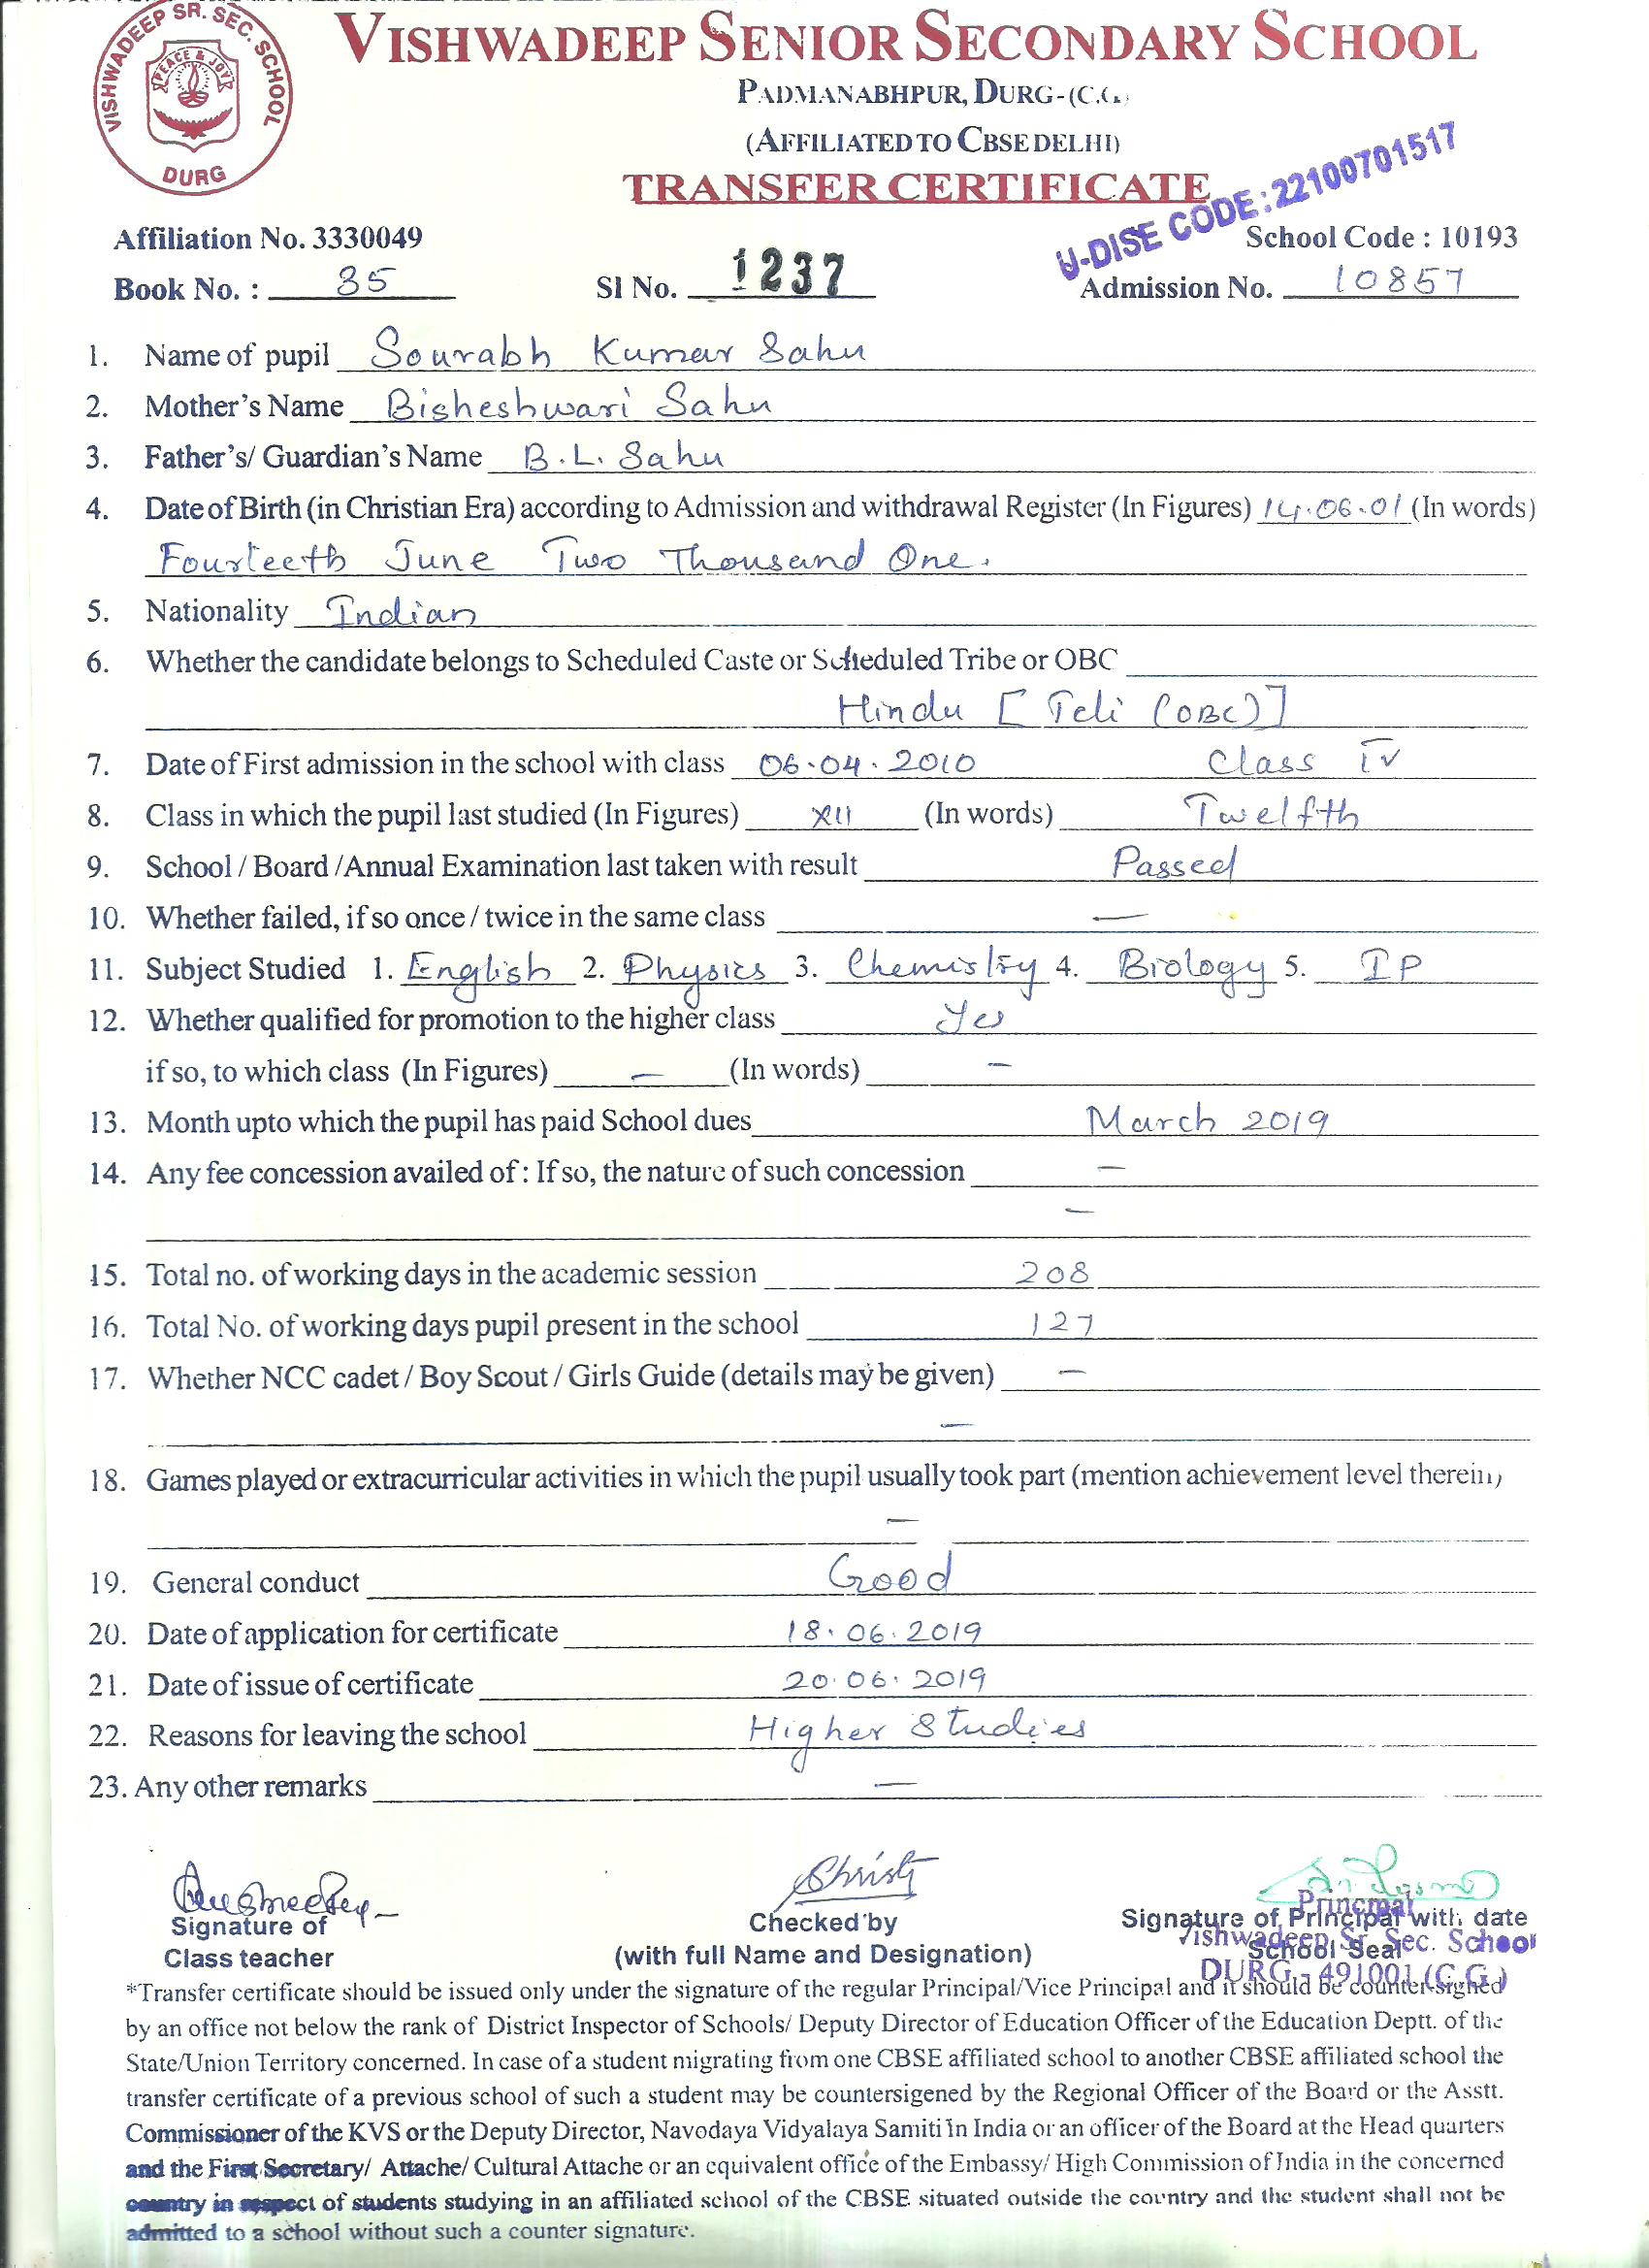 VISHWADEEP SR. SEC. SCHOOL
PEACE & JOY
DURG
VISHWADEEP SENIOR SECONDARY SCHOOL
PADMANABHPUR, DURG-(C.G.)
(AFFILIATED TO CBSE DELHI)
TRANSFER CERTIFICATE
U-DISE CODE : 22100701517
Affiliation No. 3330049 School Code : 10193
Book No. : 35 Sl No. 1237 Admission No. 10857
1. Name of pupil Sourabh Kumar Sahu
2. Mother's Name Bisheshwari Sahu
3. Father's/ Guardian's Name B.L. Sahu
4. Date of Birth (in Christian Era) according to Admission and withdrawal Register (In Figures) 14.06.01 (In words)
Fourteeth June Two Thousand One.
5. Nationality Indian
6. Whether the candidate belongs to Scheduled Caste or Scheduled Tribe or OBC
Hindu [Teli (OBC)]
7. Date of First admission in the school with class 06.04.2010 Class IV
8. Class in which the pupil last studied (In Figures) XII (In words) Twelfth
9. School / Board /Annual Examination last taken with result Passed
10. Whether failed, if so once / twice in the same class —
11. Subject Studied 1. English 2. Physics 3. Chemistry 4. Biology 5. IP
12. Whether qualified for promotion to the higher class Yes
if so, to which class (In Figures) — (In words) —
13. Month upto which the pupil has paid School dues March 2019
14. Any fee concession availed of : If so, the nature of such concession —
—
15. Total no. of working days in the academic session 208
16. Total No. of working days pupil present in the school 127
17. Whether NCC cadet / Boy Scout / Girls Guide (details may be given) —
—
18. Games played or extracurricular activities in which the pupil usually took part (mention achievement level therein)
—
19. General conduct Good
20. Date of application for certificate 18.06.2019
21. Date of issue of certificate 20.06.2019
22. Reasons for leaving the school Higher Studies
23. Any other remarks —
Christy
Principal
Signature of Checked by Signature of Principal with date
Vishwadeep Sr. Sec. School
Class teacher (with full Name and Designation) School Seal
DURG - 491001 (C.G.)
*Transfer certificate should be issued only under the signature of the regular Principal/Vice Principal and it should be counter signed
by an office not below the rank of District Inspector of Schools/ Deputy Director of Education Officer of the Education Deptt. of the
State/Union Territory concerned. In case of a student migrating from one CBSE affiliated school to another CBSE affiliated school the
transfer certificate of a previous school of such a student may be countersigened by the Regional Officer of the Board or the Asstt.
Commissioner of the KVS or the Deputy Director, Navodaya Vidyalaya Samiti in India or an officer of the Board at the Head quarters
and the First Secretary/ Attache/ Cultural Attache or an equivalent office of the Embassy/ High Commission of India in the concerned
country in respect of students studying in an affiliated school of the CBSE situated outside the country and the student shall not be
admitted to a school without such a counter signature.